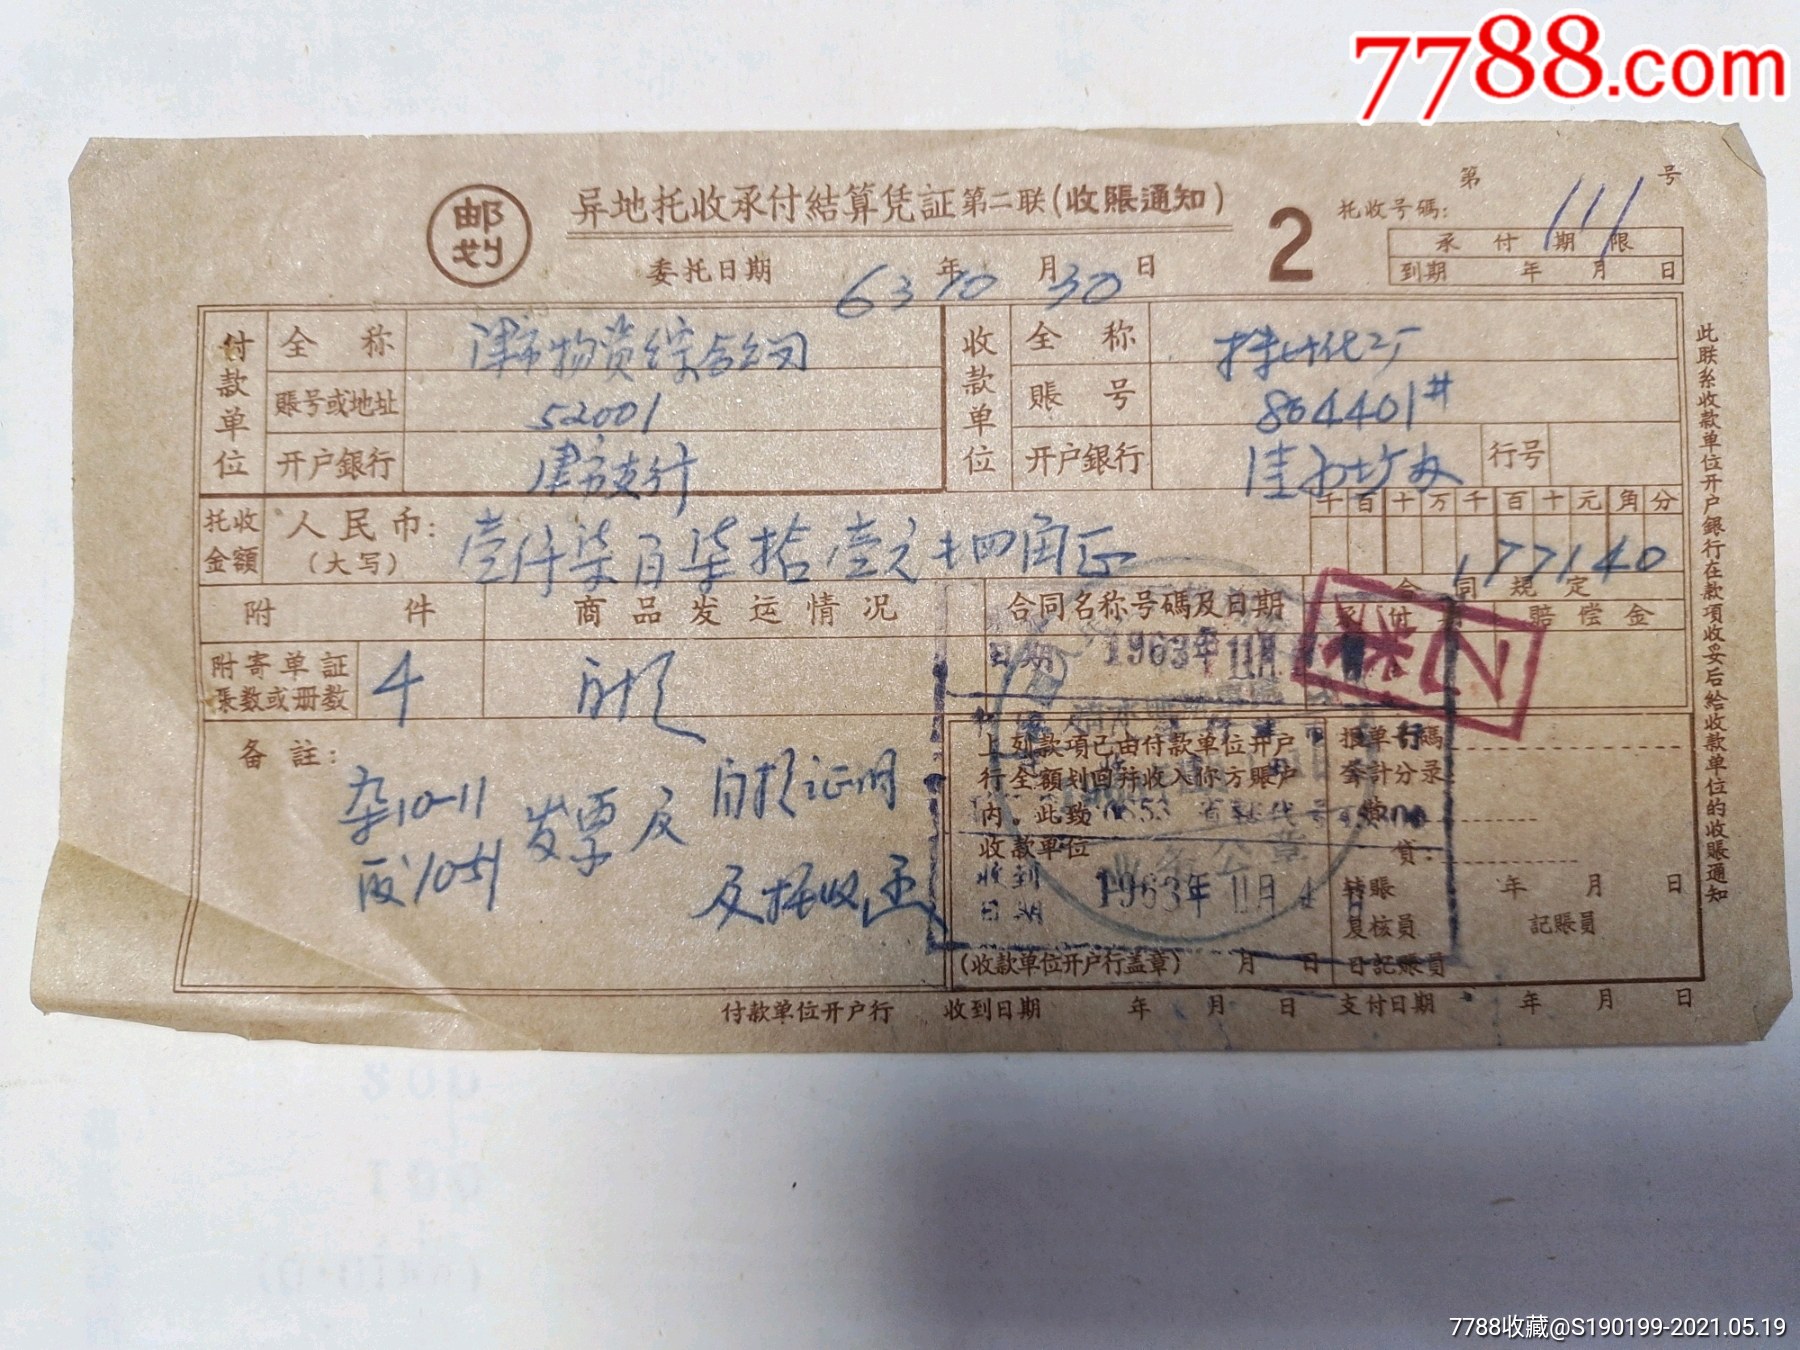 7788.com
邮划
异地托收承付結算凭証第二联(收賬通知)
2
第 111 号
托收号碼:
承付期限
到期 年 月 日
委托日期 63年10月30日
付款单位
全称 津市物资综合公司
賬号或地址 52001
开户銀行 津市支行
收款单位
全称 株州化工厂
賬号 864401#
开户銀行
行号
托收金額 人民币:(大写) 壹仟柒百柒拾壹元 四角正
千百十万千百十元角分
177140
附件
商品发运情况
合同名称号碼及日期
合同規定
承付
賠偿金
附寄单証張数或册数 4
自提
日期 1963年11月
备註:
杂10-11
发票及
自提证明
及托收函
上列款項已由付款单位开户
行全額划回幷收入你方賬户
内。此致
收款单位
收到日期 1963年11月4
(收款单位开户行盖章) 月 日
报单号碼
会計分录
貸:
转賬 年 月 日
复核員 記賬員
日記賬員
付款单位开户行 收到日期 年 月 日 支付日期 年 月 日
此联系收款单位开户銀行在款項收妥后給收款单位的收賬通知
7788收藏@S190199-2021.05.19